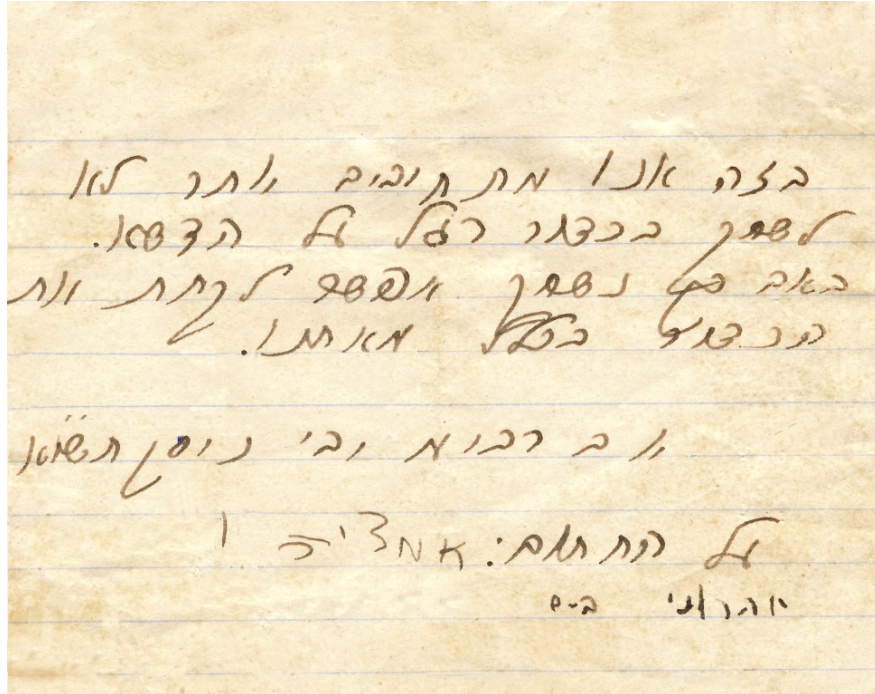 בזה אנו מתחיבים יותר לא
לשחק בכדור רגל על הדשא.
באם כן נשחק אפשר לקחת את
הכדור בכלל מאתנו.
יום רביעי ניסן תשמ"א
על החתום: אמציה ו